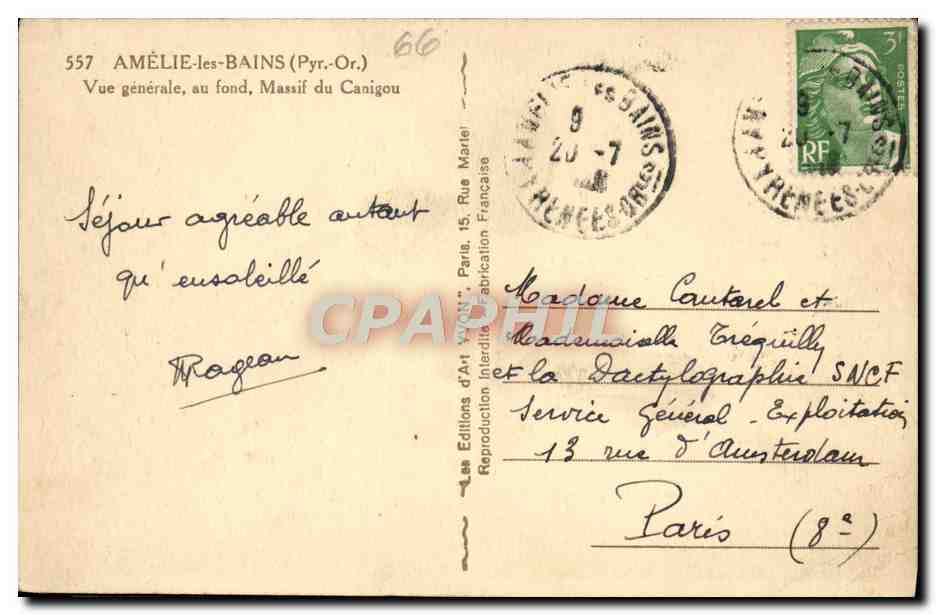 557 AMÉLIE-les-BAINS (Pyr.-Or.)
Vue générale, au fond, Massif du Canigou
66
Séjour agréable autant
qu'ensoleillé
Rageau
Les Editions d'Art "YVON", Paris, 15, Rue Martel
Reproduction Interdite Fabrication Française
LES BAINS
9
20 -7
PYRENEES-ORles
3F
POSTES
RF
BAINS
-7
PYRENEES-ORles
Madame Cantarel et
Mademoiselle Tréguilly
et la Dactylographie SNCF
Service Général - Exploitation
13 rue d'Amsterdam
Paris (8e)
CPAPHIL